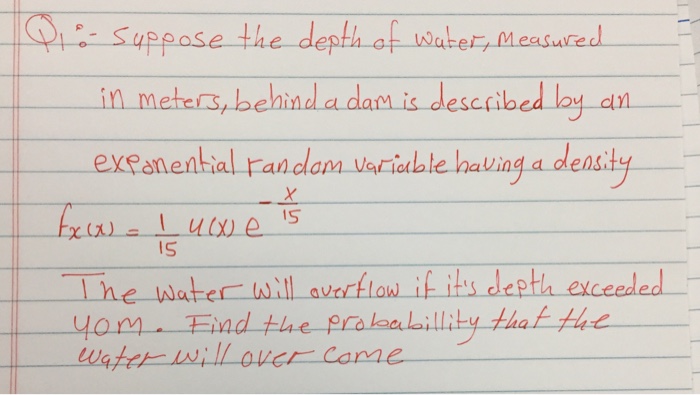 Q1:- Suppose the depth of water, Measured
in meters, behind a dam is described by an
exponential random variable having a density
fx(x) = 1/15 u(x) e^-x/15
The water will overflow if it's depth exceeded
40m. Find the probabillity that the
water will over come